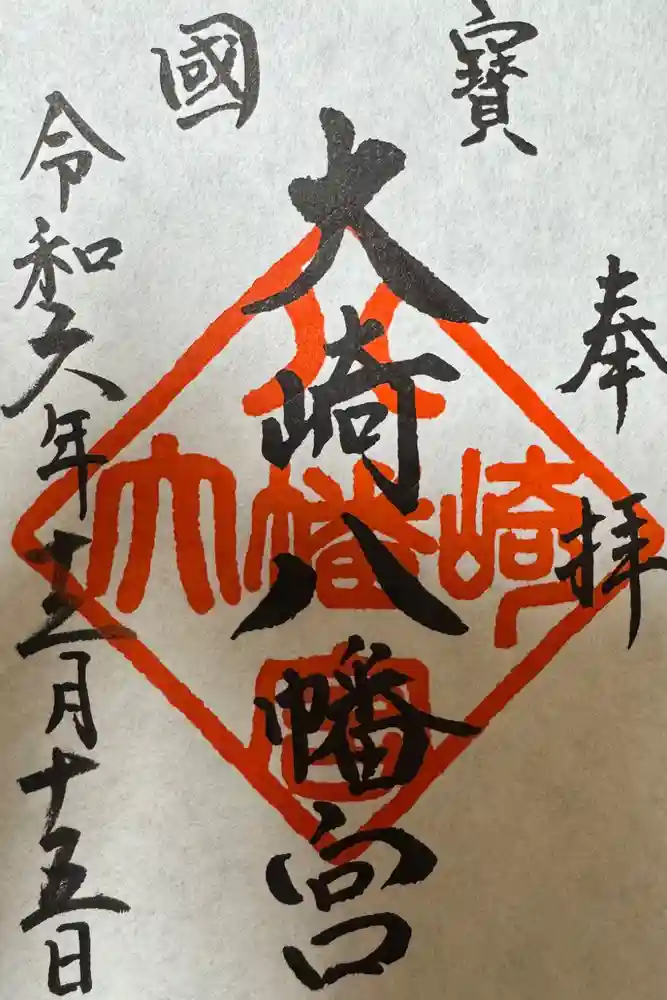 奉拝
寶國
大崎八幡宮
大崎八幡宮
令和六年十二月十五日